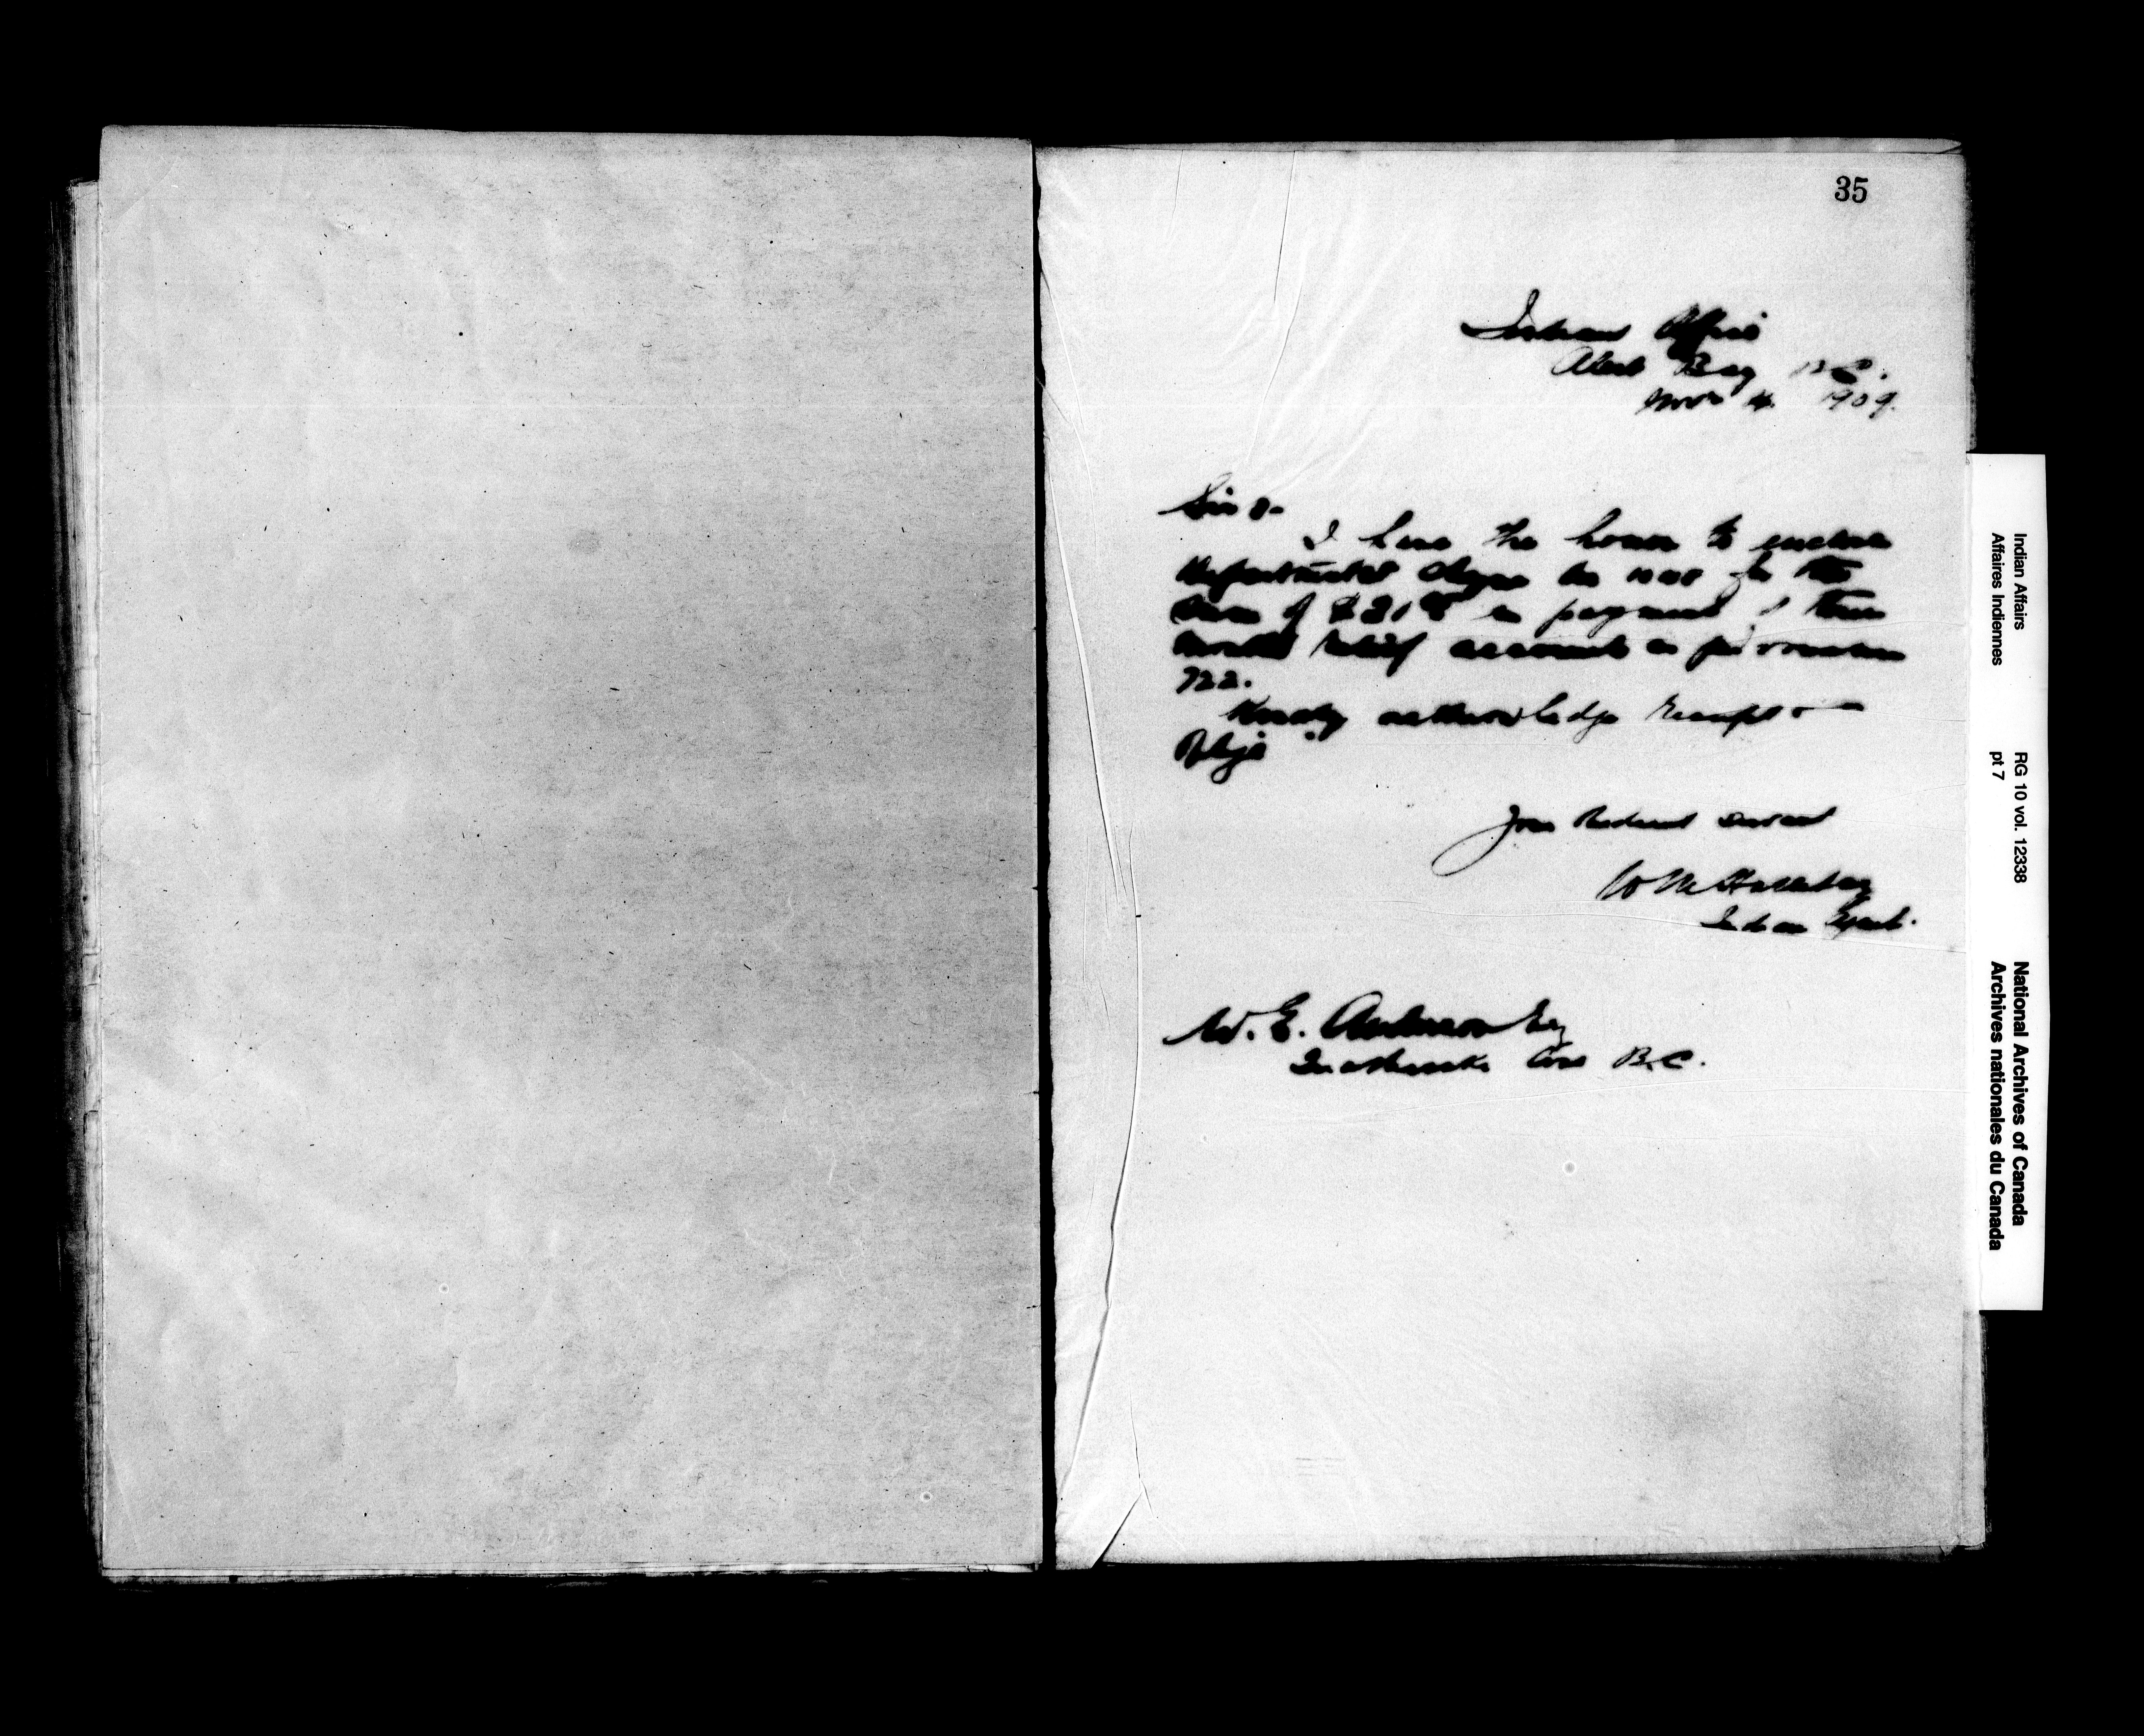 35
Indian Office
Alert Bay B.C.
Nov 4 1909.
Sir :-
I have the honor to enclose
Departmental cheque No for the
sum of $21 in payment of three
months relief account as per voucher
722.
Kindly acknowledge receipt &
Oblige
Your Obedient Servant
W M Halliday
Indian Agent.
W. E. Anderson Esq
Quathiaski Cove B.C.
Indian Affairs RG 10 vol. 12338 National Archives of Canada
Affaires Indiennes pt 7 Archives nationales du Canada